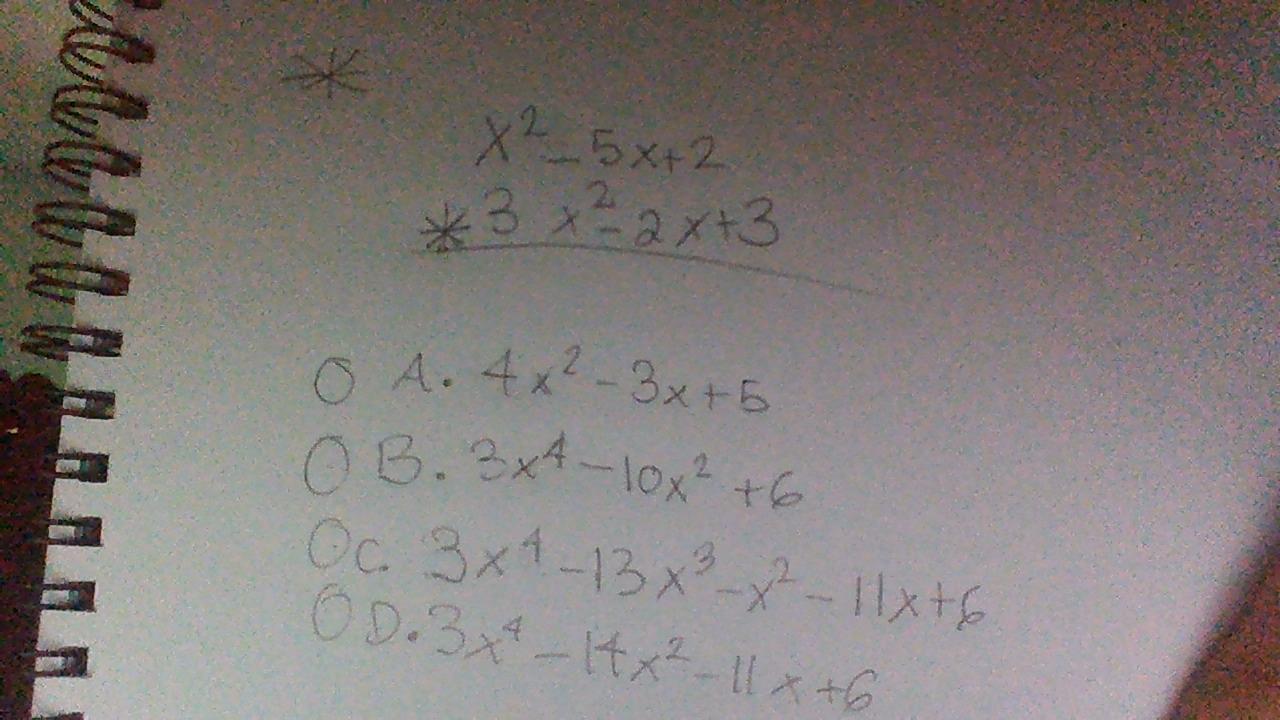 *
x²-5x+2
*3 x²-2x+3
O A. 4x²-3x+5
O B. 3x⁴-10x²+6
O C. 3x⁴-13x³-x²-11x+6
O D. 3x⁴-14x²-11x+6